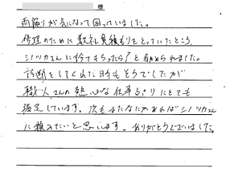 様
雨漏りが気になって困っていました。
修理のために数社見積もりをとっていたところ、
シノヅカさんに行ってもらったら？と勧められました。
診断をしてくれた時もそうでしたが
職人さんの熱心な仕事ぶりにとても
満足しています。次もまたなにかあればシノヅカさん
に頼みたいと思います。ありがとうございました。